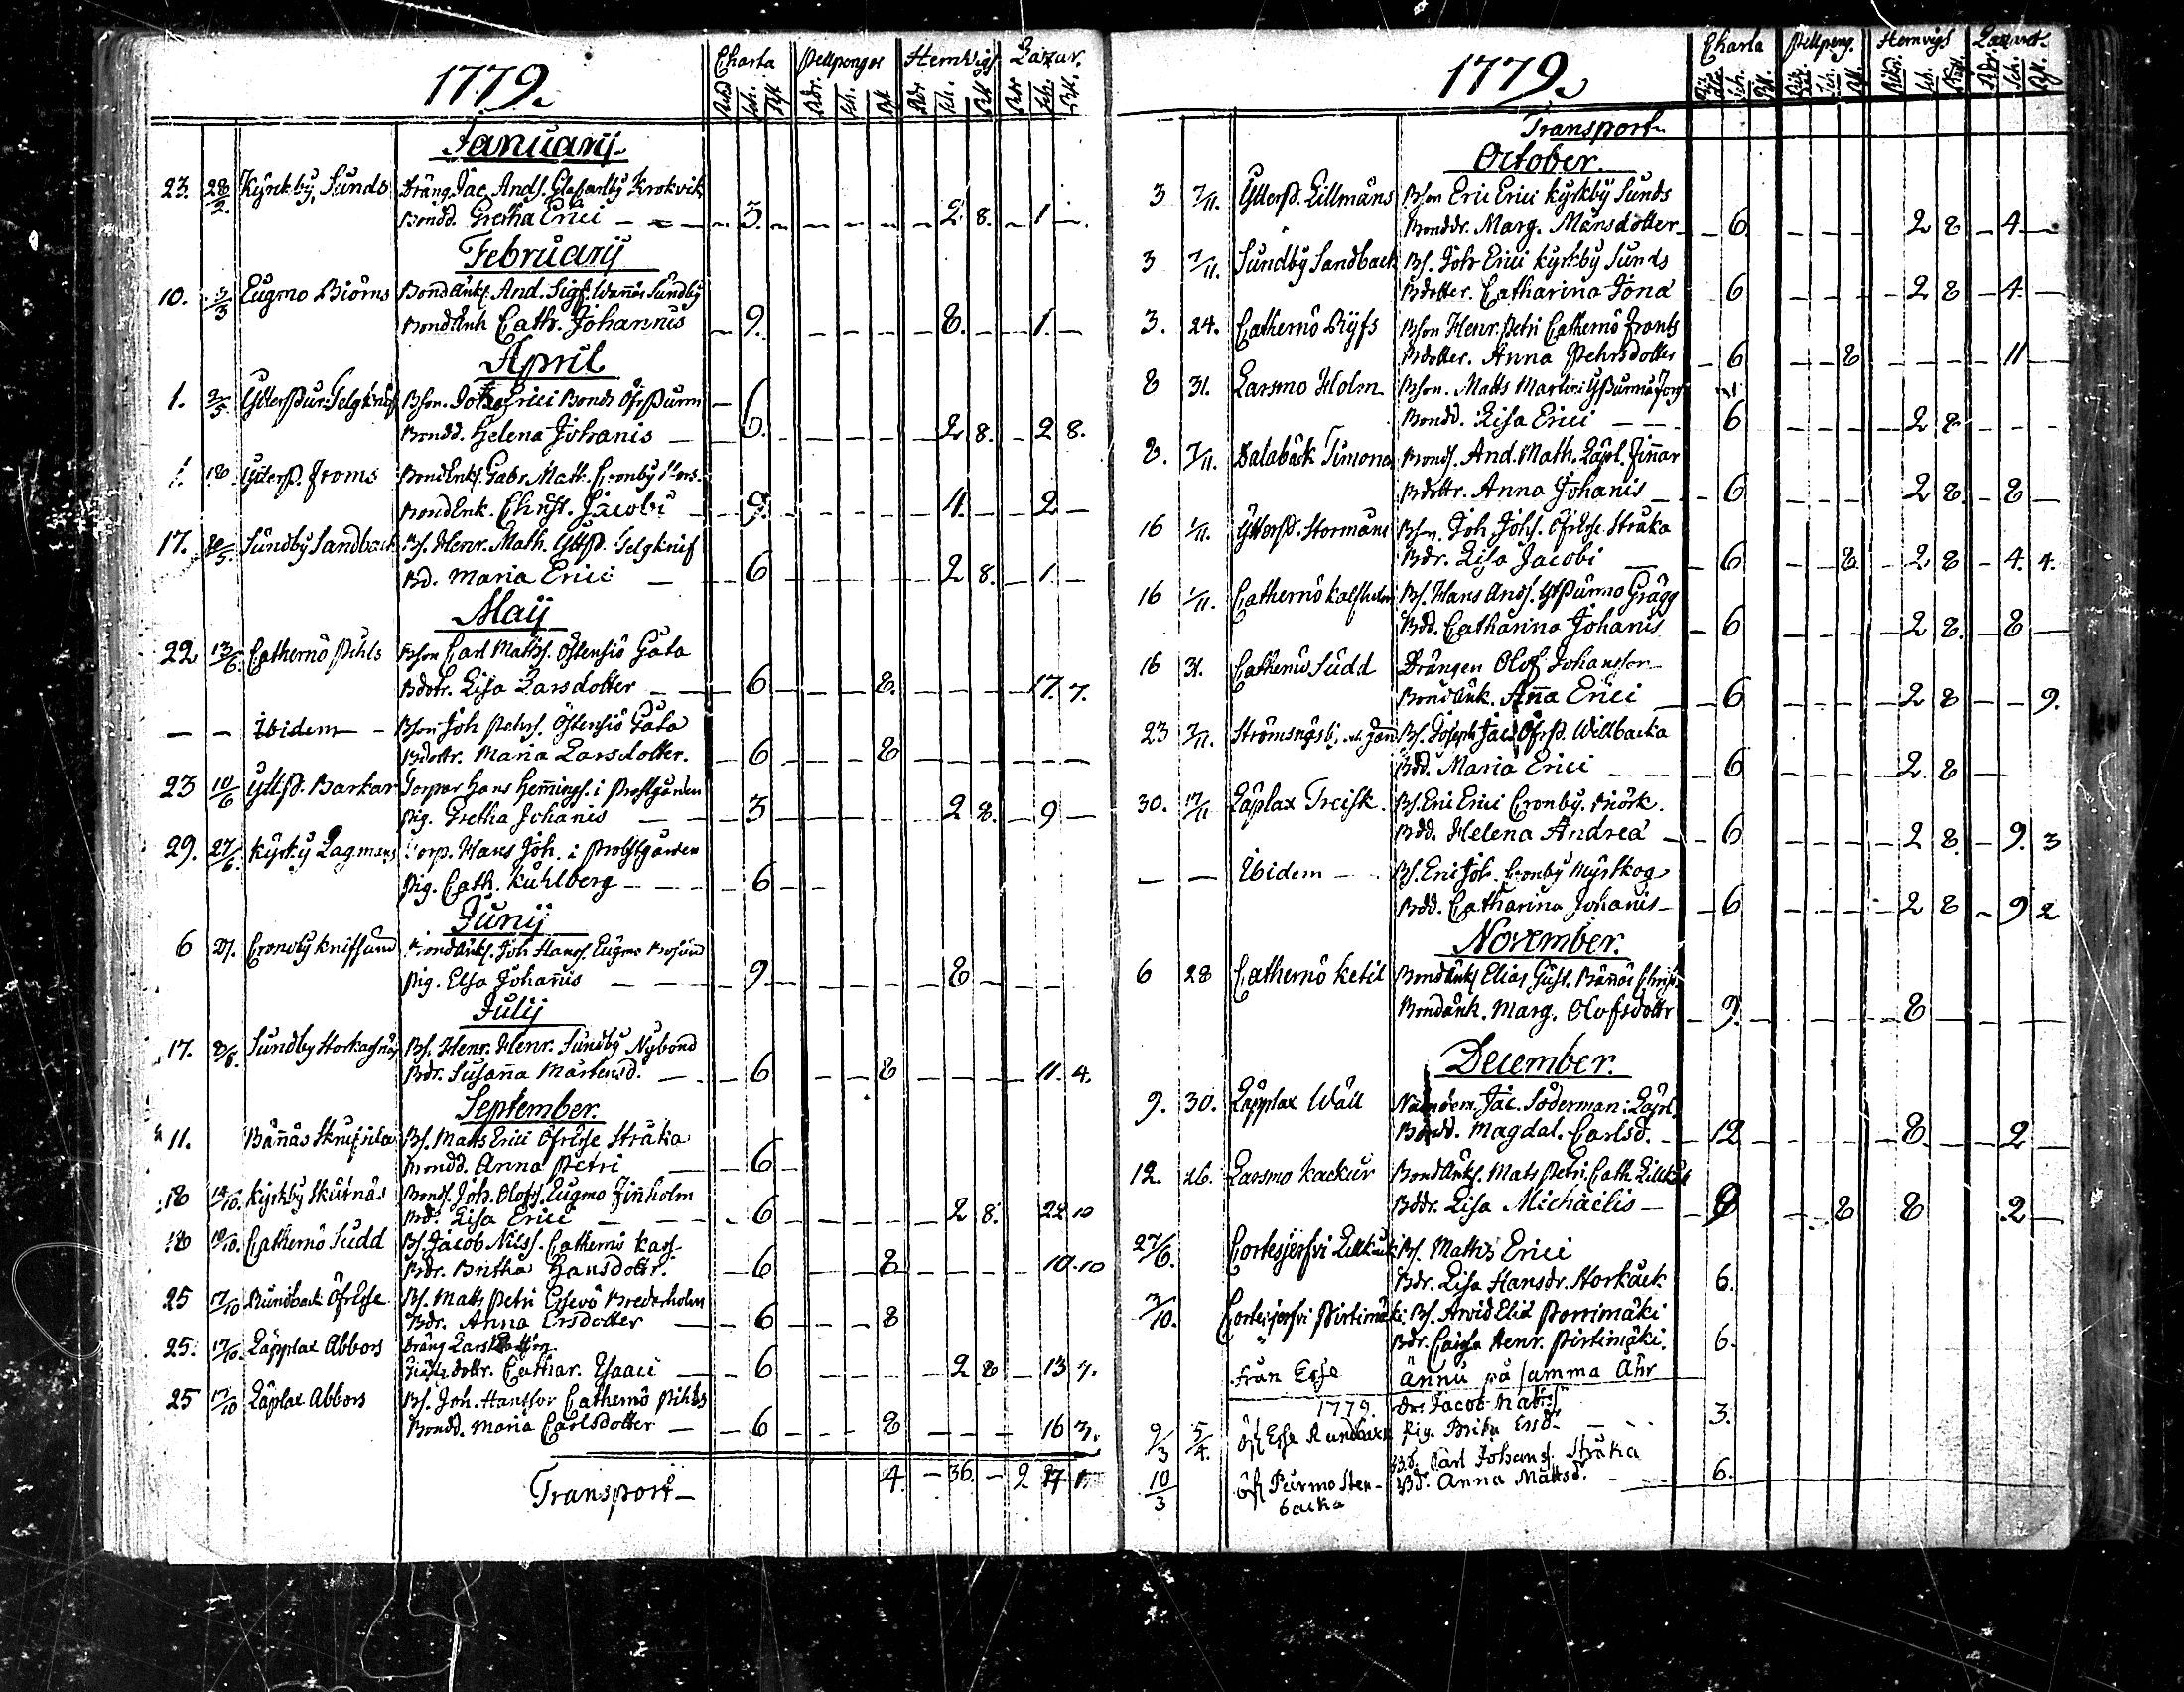 1779.
Charta Pellpengar Hemvigs Lazar.
Januarij
23. 28/2. Kyrckby Sunds Dräng Jac. Ands. Krokvik
Bondd. Gretha Erici 3. 2 8. 1
Februarij
10. 3/3 Eugmo Biörns Bondänkl. And. Sigf. Sundby
Bondänk Cath. Johannis 9. 8. 1.
April
1. 2/5 Bson. Joh. Erici Bonds
Bondd. Helena Johanis 6. 2 8. 2 8.
1. 18 Ytterp. Froms Bondänkl. Gabr. Matt. Cronby
Bondänk. Christ. Jacobi 9. 11. 2
17. Sundby Sandback Bs. Henr. Math. Gelgknif
Bd. Maria Erici 6 2 8. 1.
Maij
22 13/6. Cathernö Pihls Bson Carl Matts. Ostensiö Gata
Bdotr. Lisa Larsdotter 6 8. 17. 7.
Ibidem Bson Joh Pehrs. Östensiö Gata
Bdottr. Maria Larsdotter. 6 8
23 10/6 Ytterp. Barkar Torpar Hans Hemings. i Prostgården
Pig. Gretha Johanis 3 2 8. 9
29. 27/6. Kyrkby Lagmans Torp. Hans Joh. i Prostgården
Pig. Cath. Kuhlberg 6
Junij
6 27. Cronoby Knifsund Bondänkl. Joh Hans. Eugmo
Pig. Elsa Johanis 9 8
Julij
17. 8/8. Sundby Bs. Henr. Henr. Sundby Nybond
Bdr. Susanna Mårtensd. 6 8 11. 4.
September.
11. Bs. Matts Erici Öfr Esse Stråka
Bondd. Anna Petri 6
18 14/10. Kyrkby Skutnäs Bonds. Joh. Olofs. Eugmo Finholm
Bd. Lisa Erici 6 2 8. 22 10
18 10/10. Cathernö Sudd Bs. Jacob Nilss. Catherns
Bdr. Britha Hansdottr. 6 8 10. 10
25 17/10 Rundback Öfr Esse Bs. Matts Petri Essevö Brederholm
Bdr. Anna Ersdotter 6 8
25. 17/10. Läpplax Abbors Dräng Lars
dottr. Cathar. Isaaci 6 2 8 13 7.
25 17/10 Läplax Abbors Bs. Joh. Hansson Catherno Pihls
Bondd. Maria Carlsdotter 6 8 16 3.
Transport 4. 36. 2
1779.
Charta Pellpeng. Hemvigs Lazaret.
Transport
October.
3 7/11. Ytterp. Lillmåns Bson Eric Erici Kyrkby Sunds
Bonddr. Marg. Månsdotter 6 2 8 4
3 7/11. Sundby Sandback Bs. Joh Erici Kyrkby Sunds
Bdotter. Catharina Jona 6 2 8 4.
3. 24. Catherno Ryfs Bson Henr. Petri Catherno Fronts
Bdotter. Anna Pehrsdotter 6 8 11
8 31. Larsmo Holm Bson. Matts Martini
Bondd. Lisa Erici 6 2 8
8. 7/11. Dalaback Timona Bonds. And. Math. Läpl. Finnar
Bdottr. Anna Johanis 6 2 8 8
16 1/11. Ytterp. Stormåns Bson. Joh. Johs. Öfr Esse Stråka
Bdr. Lisa Jacobi 6 8 2 8 4. 4.
16 1/11. Catherno Kalfholm Bs. Hans Ands. Grägg
Bdd. Catharina Johanis 6 2 8. 8
16 31. Catherno Sudd Drängen Olof Johansson
Bondänk. Anna Erici 6 2 8 9.
23 7/11. Bs. Joseph Jac. Öfrp. Wellbacka
Bdd. Maria Erici 6 2. 8
30. 17/11 Läplax Treisk. Bs. Eric Erici Cronby. Biörk.
Bdd. Helena Andreä 6 2 8. 9. 3
Ibidem Bs. Eric Joh. Cronby Myrskog
Bdd. Catharina Johanis 6 2 8 9 2
November.
6 28 Catherno Ketil Bondänkl Elias Gust.
Bondänk. Marg. Olofsdottr 9. 8
December.
9. 30. Läpplax Wäll Nämdem. Jac. Söderman i Läpl.
Bondd. Magdal. Carlsd. 12 8 2
12. 26. Larsmo Kackur Bondänkl. Mats Petri. Cath.
Bddr. Lisa Michaelis 9 8 8 2
27/6. Cortesjerfvi Bs. Matts Erici
Bdr. Lisa Hansdr. Storkack 6.
3/10. Cortesjerfvi Pirtimäki Bs. Arvid Eliæ Porrimäki
Bdr. Caisa Henr. Pirtimäki. 6.
från Esse ännu på samma Åhr
1779. Dr. Jacob
9/3 5/4. Öf Esse Rundback Pig. Brita Ersd. 3.
Bd. Carl Johans. Stråka
10/3 öf Purmo Sten-backa Bd. Anna Mattsd. 6.